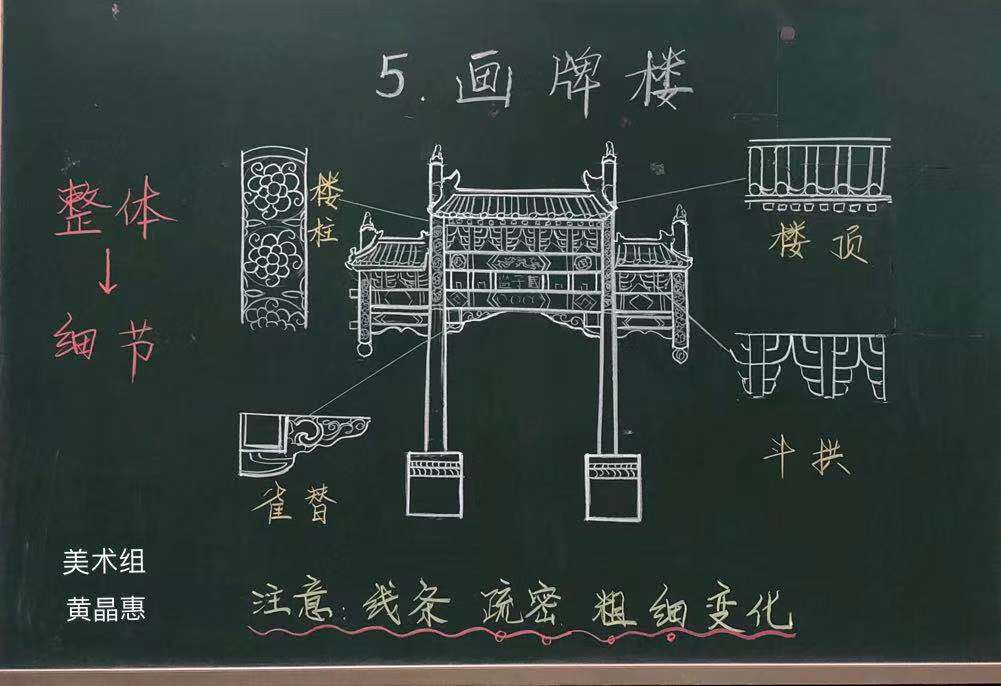 5. 画牌楼
整体
↓
细节
楼柱
楼顶
雀替
斗拱
美术组
黄晶惠
注意: 线条 疏密 粗细变化